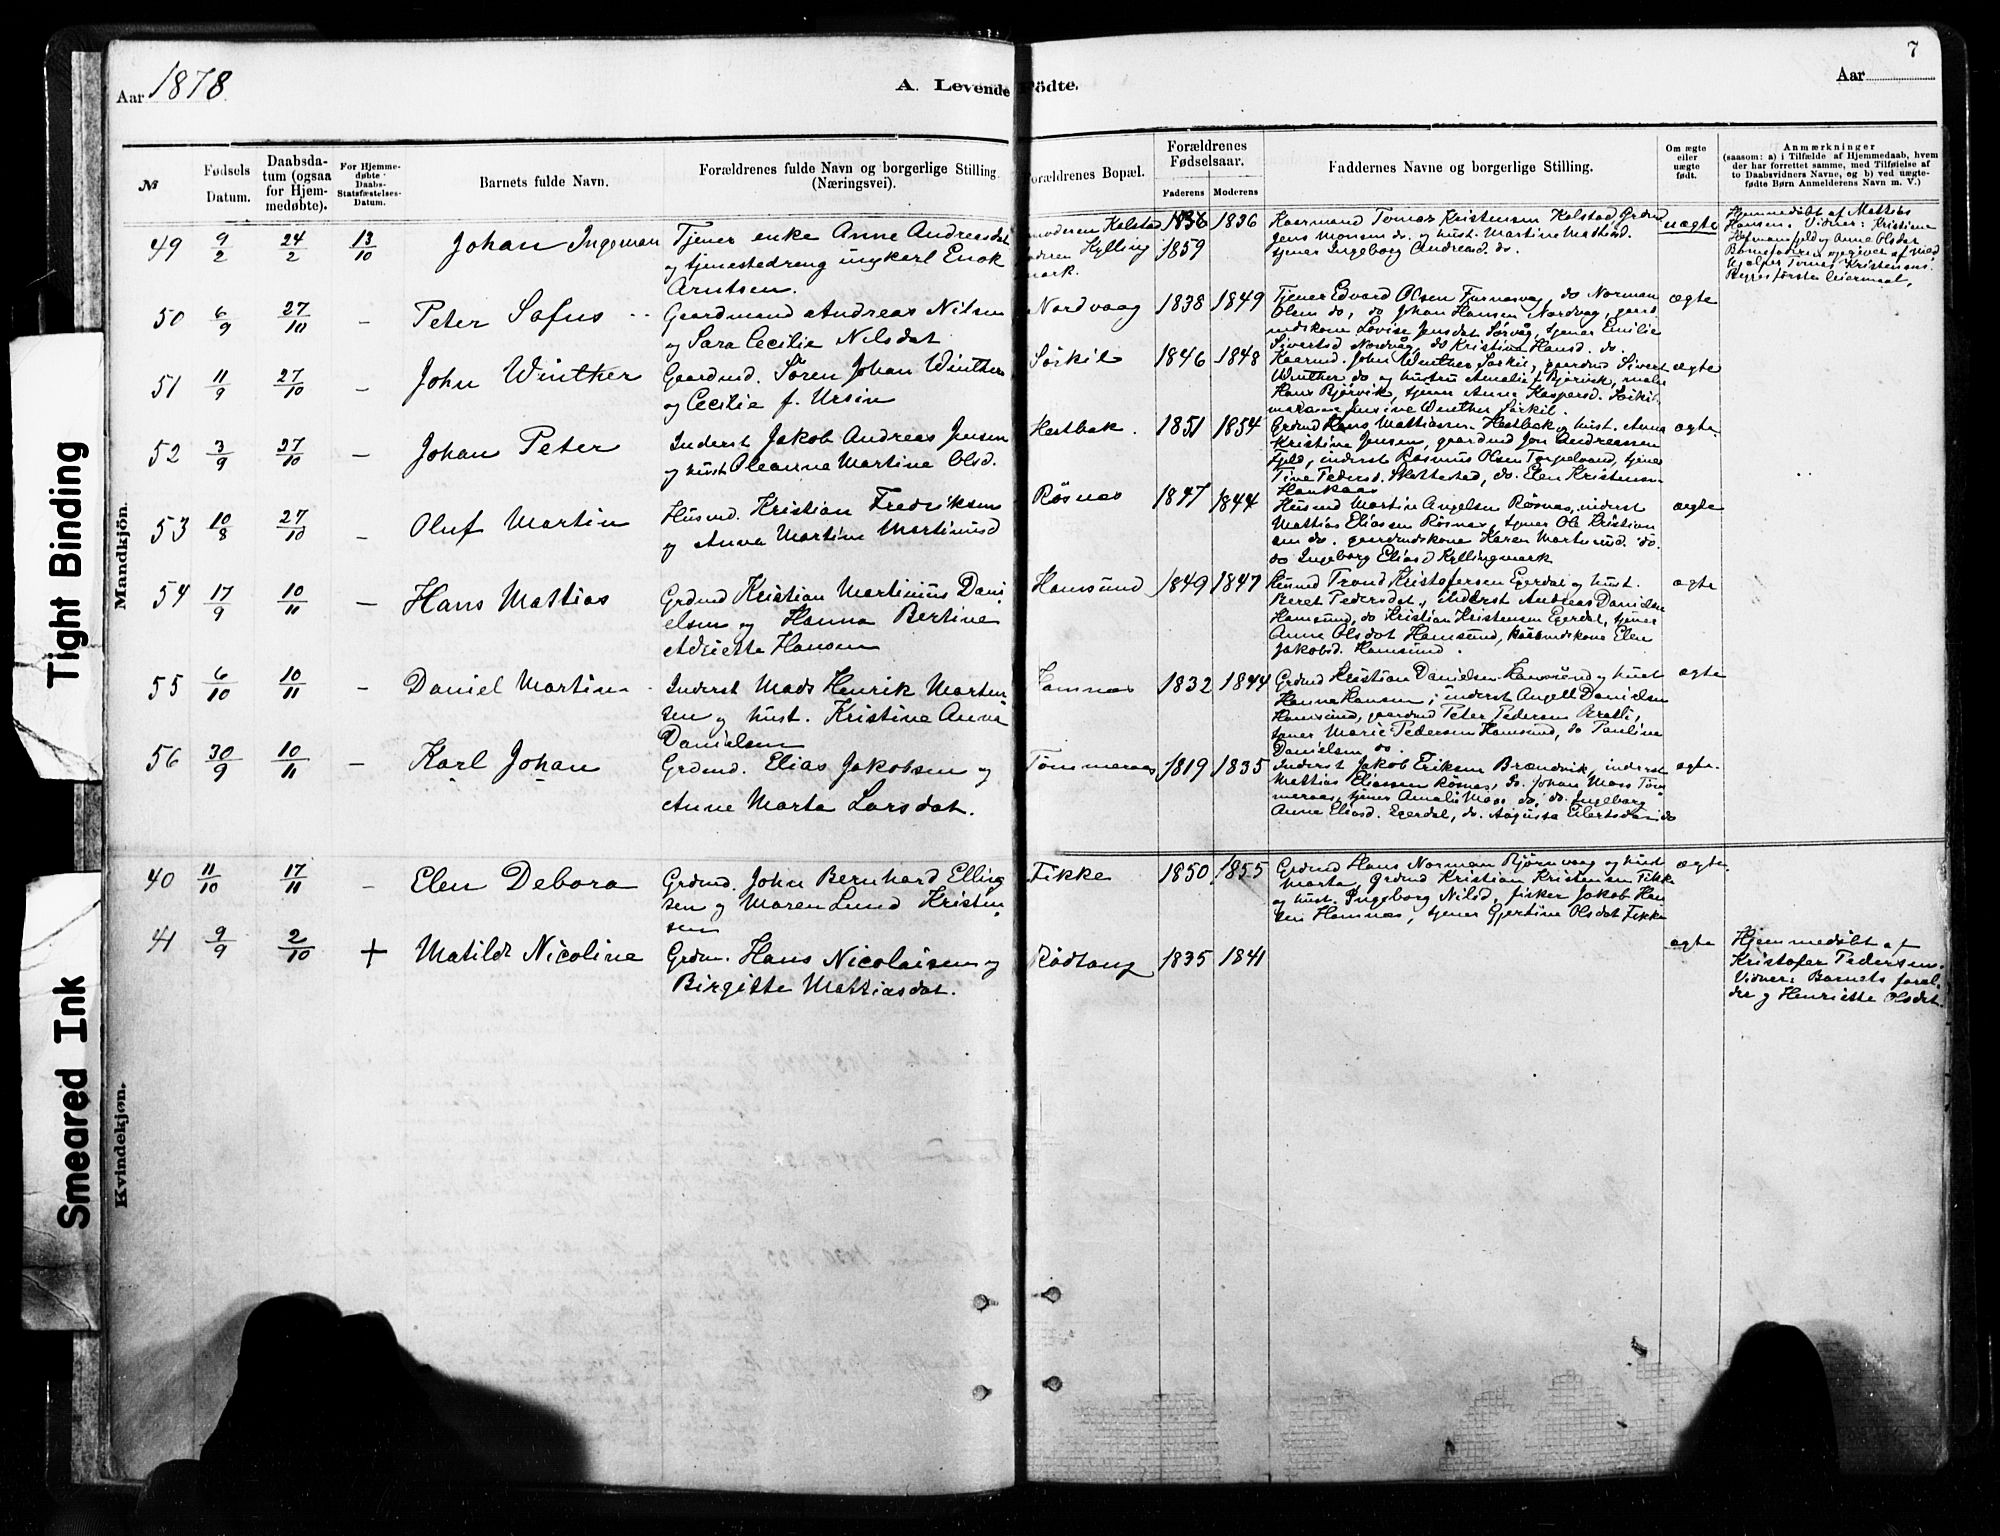 Tight Binding
Smeared Ink
Aar 1878.
A. Levende Födte.
7
Aar
№
Fødsels Datum.
Daabsdatum (ogsaa for Hjemmedøbte).
For Hjemmedøbte Daabs-Stadfæstelses-Datum.
Barnets fulde Navn.
Forældrenes fulde Navn og borgerlige Stilling. (Næringsvei).
Forældrenes Bopæl.
Forældrenes Fødselsaar.
Faderens
Moderens
Faddernes Navne og borgerlige Stilling.
Om ægte eller uægte født.
Anmærkninger
(saasom: a) i Tilfælde af Hjemmedaab, hvem der har forrettet samme, med Tilføielse af to Daabsvidners Navne, og b) ved uægtefødte Børn Anmelderens Navn m. V.)
Mandkjön.
49 9/2 24/2 13/10 Johan Ingeman
Tjener enke Anne Andreasdat
og tjenestedreng ungkarl Enok
Arntsen.
moderen Kelstad
Kylling
mark.
1836 1836
1859
Kaarmand Tomas Kristensen Kelstad, Grdmd
Jens Monsen do. og hust. Martine Matiasd.
tjener Ingeborg Andread. do.
uægte
Hjemmedøbt af Mattias
Hansen. Vidner: Kristiane
Hofmansfjeld og Anne Olsdat
Barnefaderen opgivet af Med
hjælper Tomas Kristensen.
Begges første Leiermaal.
50 6/9 27/10 – Peter Sofus
Gaardmand Andreas Nilsen
og Sara Cecilie Nilsdat
Nordvaag 1838 1849
Tjener Edvard Olsen Furnesvag, do Norman
Olsen do, do Johan Hansen Nordvag, gaard
mdskone Lovise Jensdat Sørvåg, tjener Emilie
Sivertsd Nordvåg, do Kristine Hansd. do.
ægte
51 11/9 27/10 – John Winther
Gaardmd. Søren Johan Winther
og Cecilie f. Ursin
Sørkil 1846 1848
Kaarmd. John Winther Sørkil, gaardmd Sivert
Winther do og hustru Amalie f Bjørvik,
Hans Bjørvik, tjener Anne Kaspersd. Sørkil
Jensine Winther Sørkil.
ægte
52 3/9 27/10 – Johan Peter
Inderst Jakob Andreas Jensen
og hust Oleanna Martine Olsd.
Hestbak. 1851 1854
Grdmd Hans Mattiassen Hestbak og hust. Anna
Kristine Jensen, gaardmd Jon Andreassen
Fjeld, inderst Rasmus Olsen Torpelvand, tjener
Tine Pedersd. Slottestad, do. Elen Kristensen
Haukaas
ægte
53 10/8 27/10 – Oluf Martin
Husmd. Kristian Fredriksen
og Anna Martine Martinusd
Røsnes 1847 1844
Husmd Martin Angelsen Røsnes, inderst
Mattias Eliassen Røsnes, tjener Ole Kristian
sen do. gaardmdskone Karen Martinusd. do.
do Ingeborg Eliasd Kyllingmark
ægte
54 17/9 10/11 – Hans Mattias
Grdmd Kristian Martinius Dani
elsen og Hanna Bertine
Adriette Hansen
Hamsund 1849 1847
Husmd Trond Kristofersen Egerdal og hust.
Beret Pedersdat, inderst Andreas Danielsen
Hamsund, do Kristian Kristensen Egerdal, tjener
Anne Olsdat Hamsund, kaarmdskone Elen
Jakobsd. Hamsund.
ægte
55 6/10 10/11 – Daniel Martin
Inderst Mads Henrik Morten
sen og hust. Kristine Anna
Danielsen
Hamnes 1832 1844
Grdmd Kristian Danielsen Hamsund og hust
Hanna Hansen, inderst Angell Danielsen
Hamsund, gaardmd Peter Pedersen
tjener Marie Pedersen Hamsund, do Pauline
Danielsen do.
ægte
56 30/9 10/11 – Karl Johan
Grdmd. Elias Jakobsen og
Anne Marta Larsdat.
Tømmeraas 1819 1835
Inderst Jakob Eriksen Brændvik, inderst
Mattias Eliassen Røsnes, do. Johan Moss Töm
meraas, tjener Amalie Moss do, do. Ingeborg
Anne Eliasd. Egerdal, do. Augusta Eilertsdan do
ægte
Kvindekjön.
40 11/10 17/11 – Elen Debora
Grdmd. John Bernhard Elling
sen og Maren Lund Kristen
sen
Fikke 1850 1855
Grdmd Hans Norman Bjørnvaag og hust
Marta, Grdmd Kristian Kristensen Fikke
og hust. Ingeborg Nilsd, fisker Jakob Han
sen Hamnes, tjener Gjertine Olsdat Fikke
ægte
41 9/9 2/10 + Matilde Nicoline
Grdm. Hans Nicolaisen og
Birgitte Mattiasdat.
Rødtang 1835 1841
ægte
Hjemmedøbt af
Kristofer Pedersen.
Vidner: Barnets foræl
dre og Henriette Olsdat.